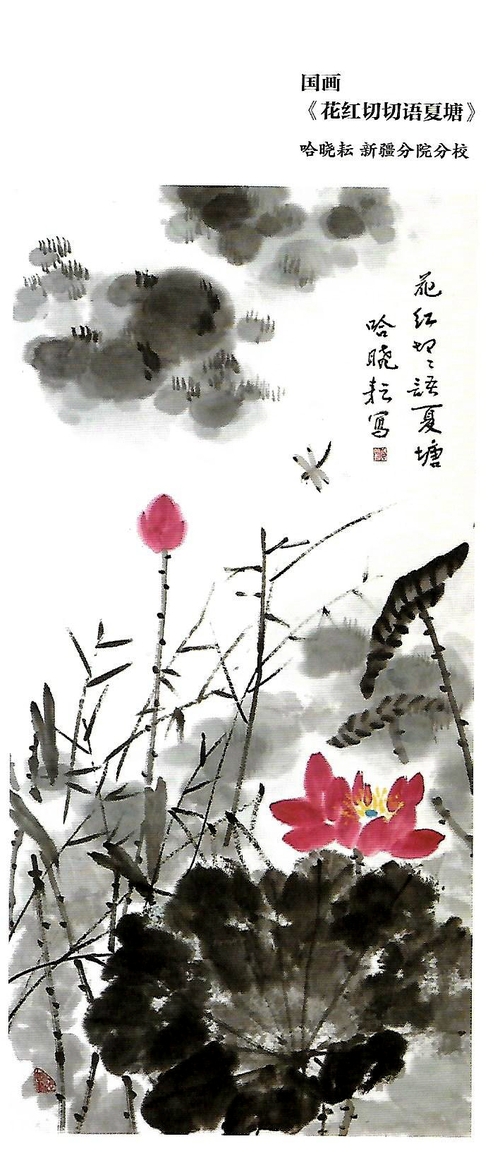 国画
《花红切切语夏塘》
哈晓耘 新疆分院分校
花红切々語夏塘
哈晓耘写